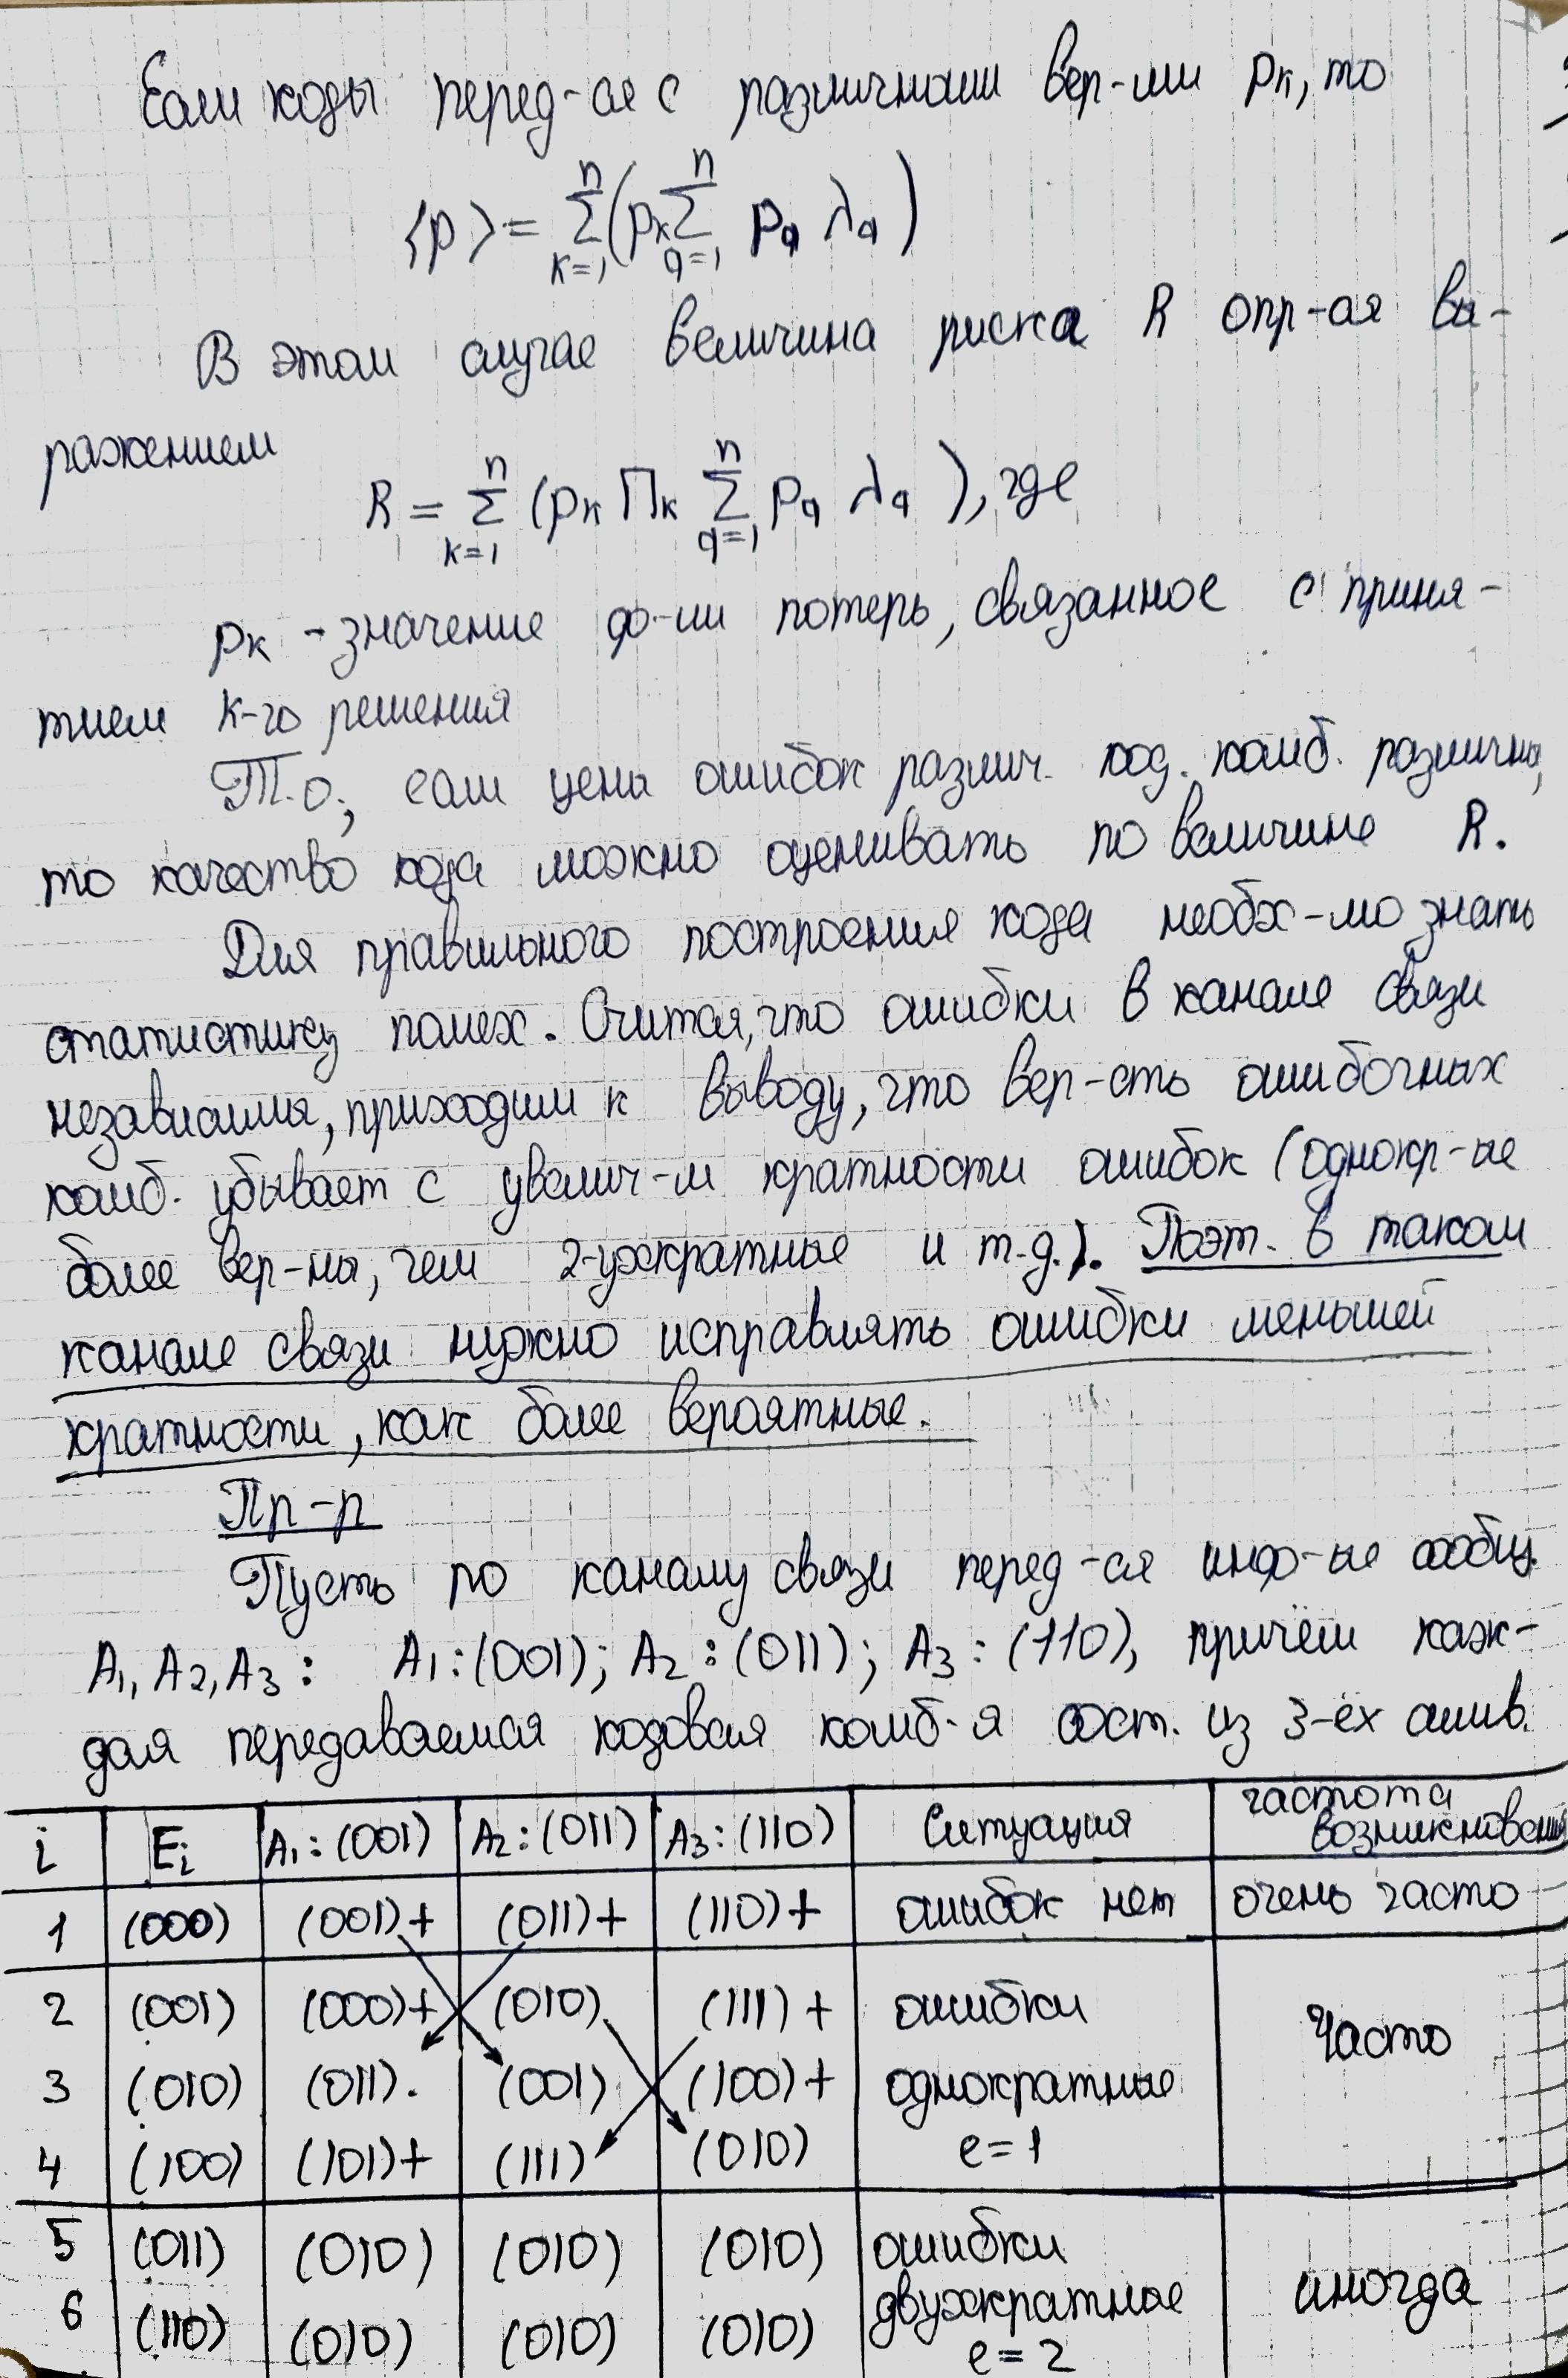 Если коды перед-ся с различными вер-ми pк, то
⟨p⟩ = Σ(k=1..n) (pк Σ(q=1..n) pq λq)
В этом случае величина риска R опр-ся вы-
ражением
R = Σ(k=1..n) (pк Пк Σ(q=1..n) pq λq), где
pк - значение ф-ии потерь, связанное с приня-
тием к-го решения
Т.о., если цены ошибок различ. код. комб. различны,
то качество кода можно оценивать по величине R.
Для правильного построения кода необх-мо знать
статистику помех. Считая, что ошибки в канале связи
независимы, приходим к выводу, что вер-сть ошибочных
комб. убывает с увелич-м кратности ошибок (однокр-ые
более вер-ны, чем 2-ухкратные и т.д.). Поэт. в таком
канале связи нужно исправлять ошибки меньшей
кратности, как более вероятные.
Пр-р
Пусть по каналу связи перед-ся инф-ые сообщ.
A1, A2, A3: A1:(001); A2:(011); A3:(110), причём каж-
дая передаваемая кодовая комб-я сост. из 3-ёх симв.
i Ei A1:(001) A2:(011) A3:(110) Ситуация частота возникновения
1 (000) (001)+ (011)+ (110)+ ошибок нет очень часто
2 (001) (000)+ (010) (111)+ ошибки часто
3 (010) (011). (001) (100)+ однократные
4 (100) (101)+ (111) (010) e=1
5 (011) (010) (010) (010) ошибки иногда
6 (110) (010) (010) (010) двухкратные
e=2